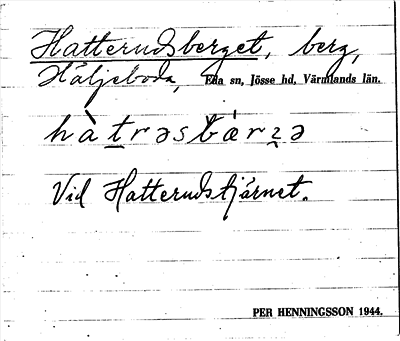 Hatterudsberget, berg,
Häljeboda, Eda sn, Jösse hd, Värmlands län.
hàt̲rəsbǽrʒə
Vid Hatterudstjärnet.
PER HENNINGSSON 1944.